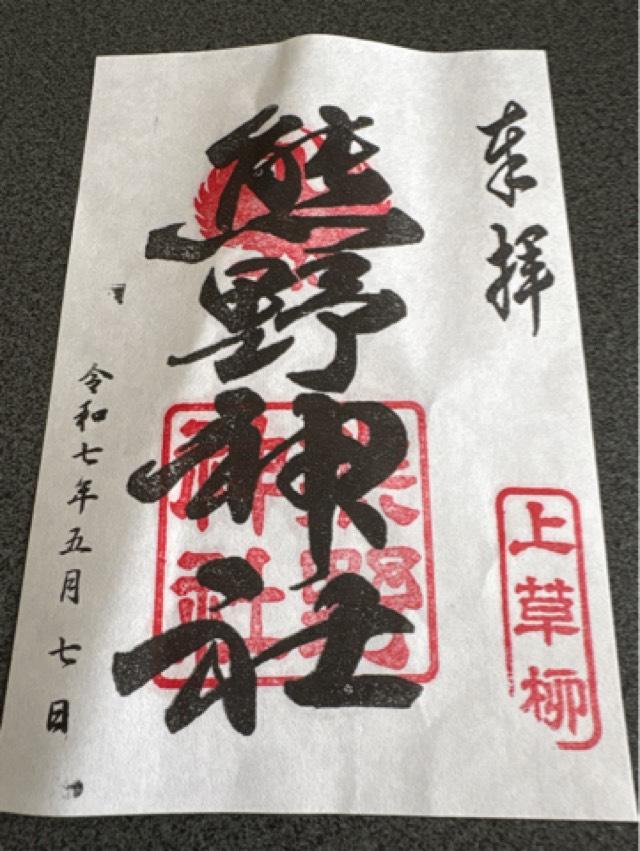 奉拝
上草柳
熊野神社
熊野
神社
令和七年五月七日